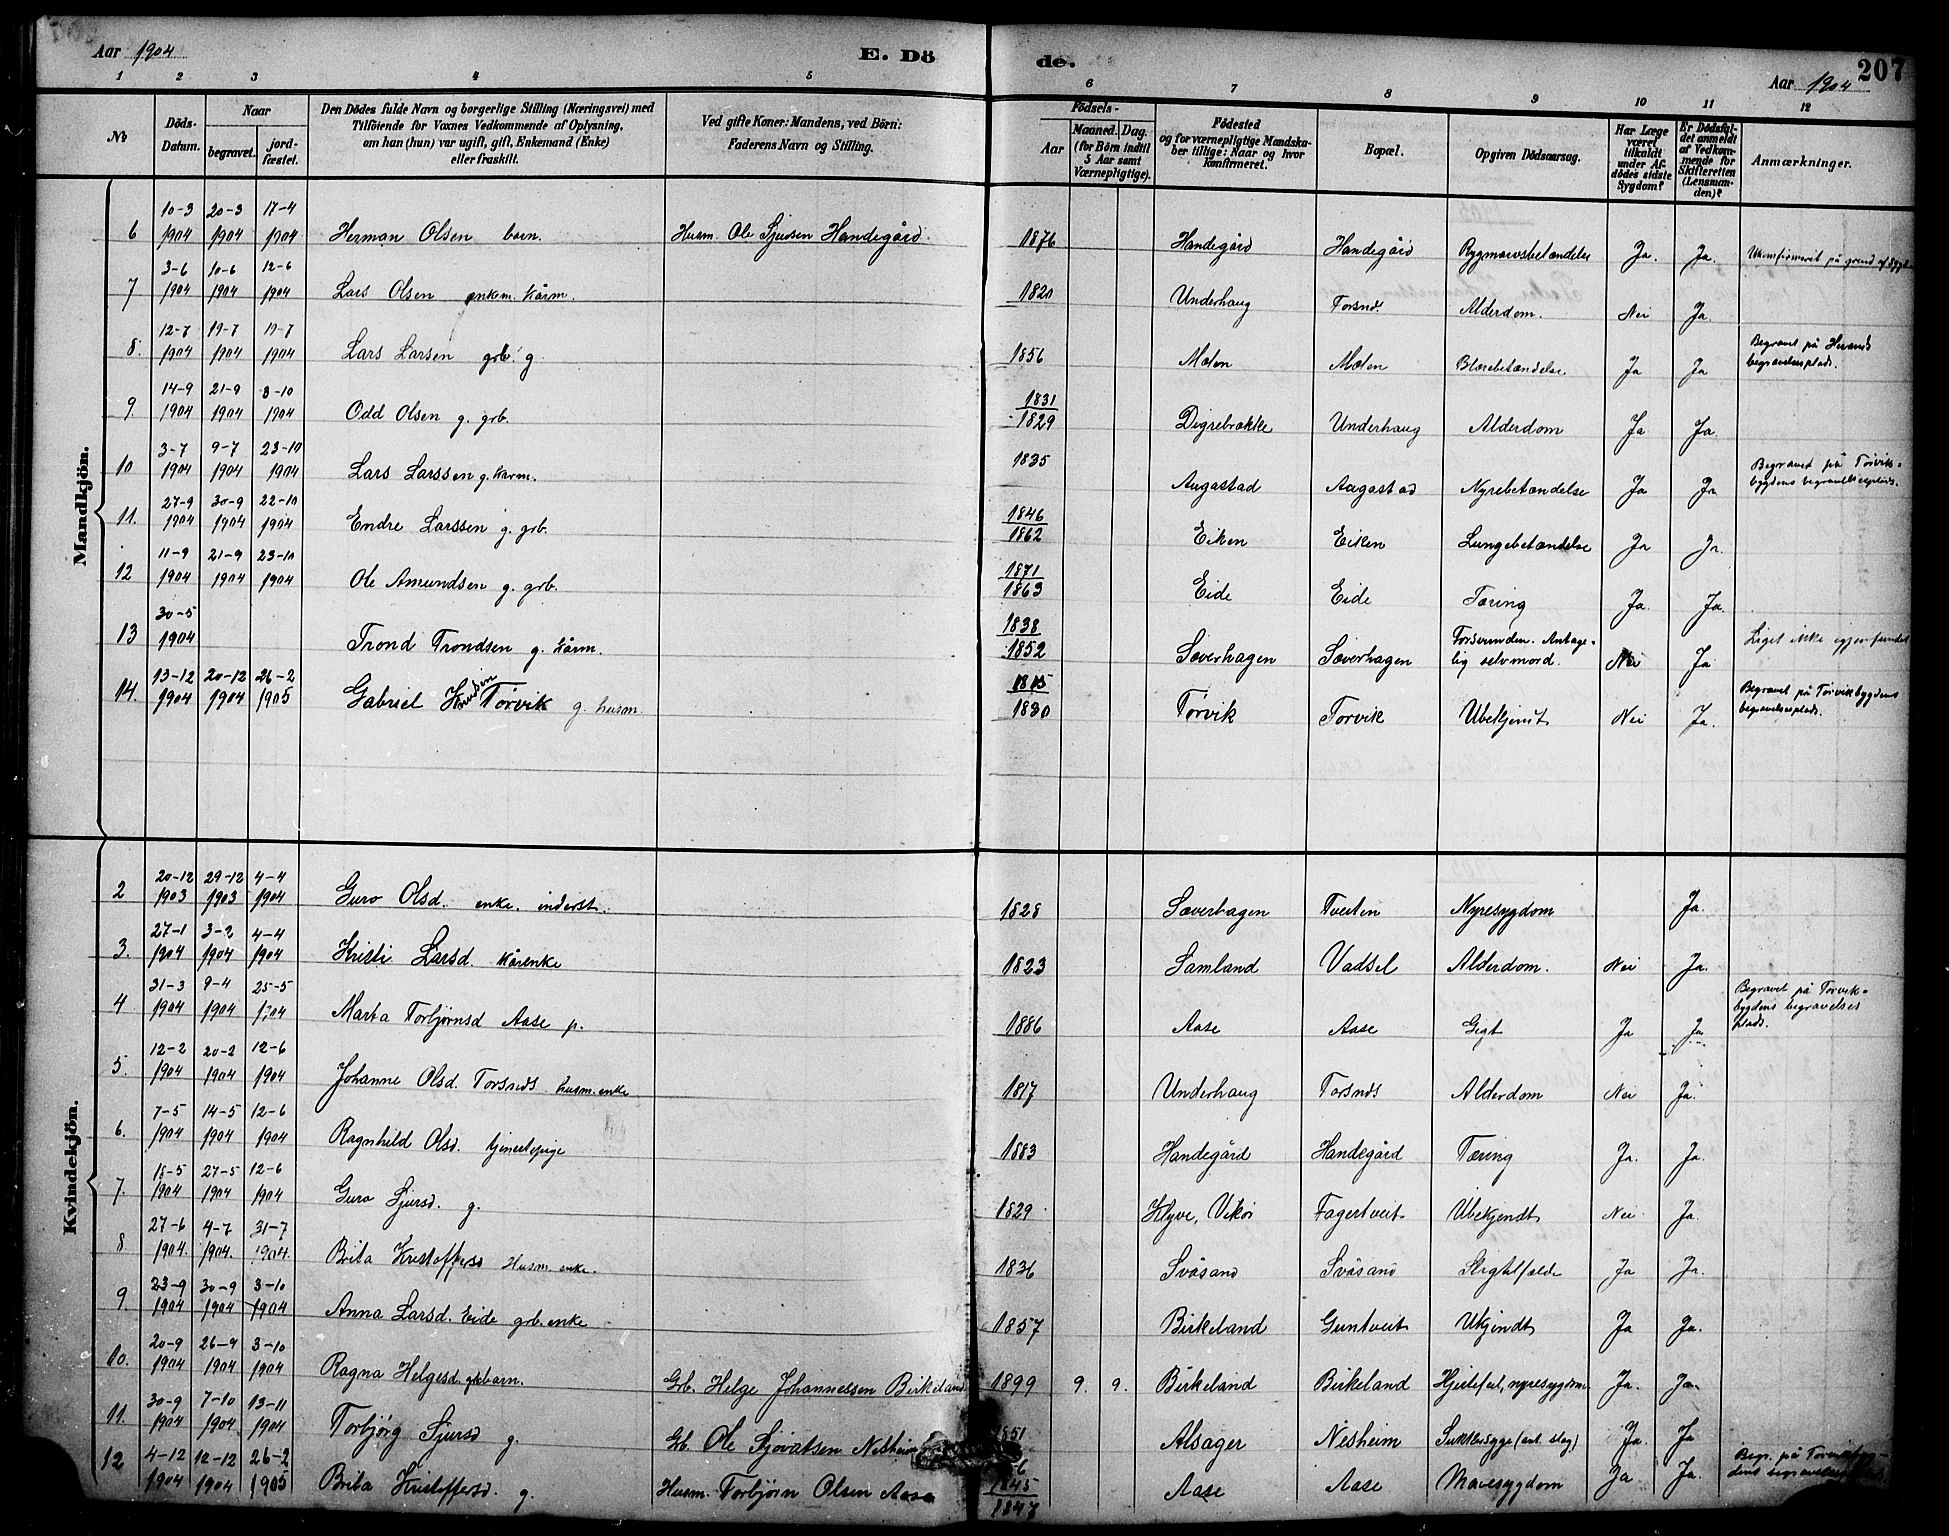 Aar 1904
E. Dö
de.
Aar 1904
207
1 2 3 4 5 6 7 8 9 10 11 12
№ Döds-Datum. Naar begravet. jord-fæstet. Den Dödes fulde Navn og borgerlige Stilling (Næringsvei) med Tilföiende for Voxnes Vedkommende af Oplysning, om han (hun) var ugift, gift, Enkemand (Enke) eller fraskilt. Ved gifte Koner: Mandens, ved Börn: Faderens Navn og Stilling. Födsels- Aar Maaned. Dag. (for Börn indtil 5 Aar samt Værnepligtige). Födested og for værnepligtige Mandskaber tillige: Naar og hvor konfirmeret. Bopæl. Opgiven Dödsaarsag. Har Læge været tilkaldt under Afdödes sidste Sygdom? Er Dödsfaldet anmeldt af Vedkommende for Skifteretten (Lensmanden)? Anmærkninger.
Mandkjön.
6 10-3 1904 20-3 1904 17-4 1904 Herman Olsen barn. Husm. Ole Sjursen Handegård. 1876 Handegård Handegård Rygmarvsbetændelse Ja. Ja. Ukonfirmeret på grund af
7 3-6 1904 10-6 1904 12-6 1904 Lars Olsen enkm. kårm. 1820 Underhaug Torsnes. Alderdom. Nei Ja.
8. 12-7 1904 19-7 1904 19-7 1904 Lars Larsen grb. g. 1856 Molen Molen Blærebetændelse Ja Ja Begravet på Herands begravelsesplads.
9 14-9 1904 21-9 1904 8-10 1904 Odd Olsen g. grb. 1831 1829 Digrebrække Underhaug Alderdom Ja Ja.
10 3-7 1904 9-7 1904 23-10 1904 Lars Larssen g. kårm. 1835 Augastad Augastad Nyrebetændelse Ja Ja Begravet på Torviksbygdens begravelsesplads.
11. 27-9 1904 30-9 1904 22-10 1904 Endre Larssen g. grb. 1846 1862 Eiken Eiken Lungebetændelse Ja Ja.
12 11-9 1904 21-9 1904 23-10 1904 Ole Amundsen g. grb. 1871 1863 Eide Eide Tæring Ja. Ja.
13 30-5 1904 Trond Trondsen g. kårm. 1838 1852 Sæverhagen Sæverhagen Forsvunden. Antagelig selvmord. Nei Ja Liget ikke igjenfundet
14. 13-12 1904 20-12 1904 26-2 1905 Gabriel Knudsen Tørvik g. husm. 1815 1830 Tørvik Torvik Ubekjendt Nei Ja. Begravet på Torvikbygdens begravelsesplads.
Kvindekjön.
2 20-12 1903 29-12 1903 4-4 1904 Guro Olsd. enke. inderst. 1828 Sæverhagen Tveiten Nyresygdom Ja.
3. 27-1 1904 3-2 1904 4-4 1904 Kristi Larsd. kårenke 1823 Samland Vadsel Alderdom. Nei Ja.
4 31-3 1904 9-4 1904 25-5 1904 Marta Torbjørnsd Aase p. 1886 Aase Aase Gigt Ja Ja Begravet på Torviksbygdens begravelsesplads.
5. 12-2 1904 20-2 1904 12-6 1904 Johanne Olsd. Torsnes husm. enke 1817 Underhaug Torsnes Alderdom Nei Ja.
6. 7-5 1904 14-5 1904 12-6 1904 Ragnhild Olsd. tjenestepige 1883 Handegård Handegård Tæring Ja. Ja.
7. 18-5 1904 27-5 1904 12-6 1904 Guro Sjursd. g. 1829 Klyve, Vikör Fagertveit Ubekjendt Nei Ja.
8 27-6 1904. 4-7 1904. 31-7 1904. Brita Kristoffersd Husm. enke. 1836 Svåsand Svåsand Ja Ja.
9. 23-9 1904 30-9 1904 3-10 1904 Anna Larsd. Eide grb. enke 1857 Birkeland Guntveit Ukjendt Ja Ja.
10. 20-9 1904 26-9 1904 3-10 1904 Ragna Helgesd. grbbarn. Grb. Helge Johannessen Birkeland 1899 9. 9. Birkeland Birkeland Hjertefeil, nyresygdom Ja. Ja.
11. 30-9 1904 7-10 1904 13-11 1904 Torbjørg Sjursd g. Grb. Ole Sjovatsen Nesheim 1851 Alsager Nesheim Sukkersyge (ant. slag) Ja. Ja
12 4-12 1904 12-12 1904 26-2 1905 Brita Kristoffersd. g. Husm. Torbjörn Olsen Aase 1845 1847 Aase Aase Mavesygdom Ja Ja. Begr. på Torviksbygdens